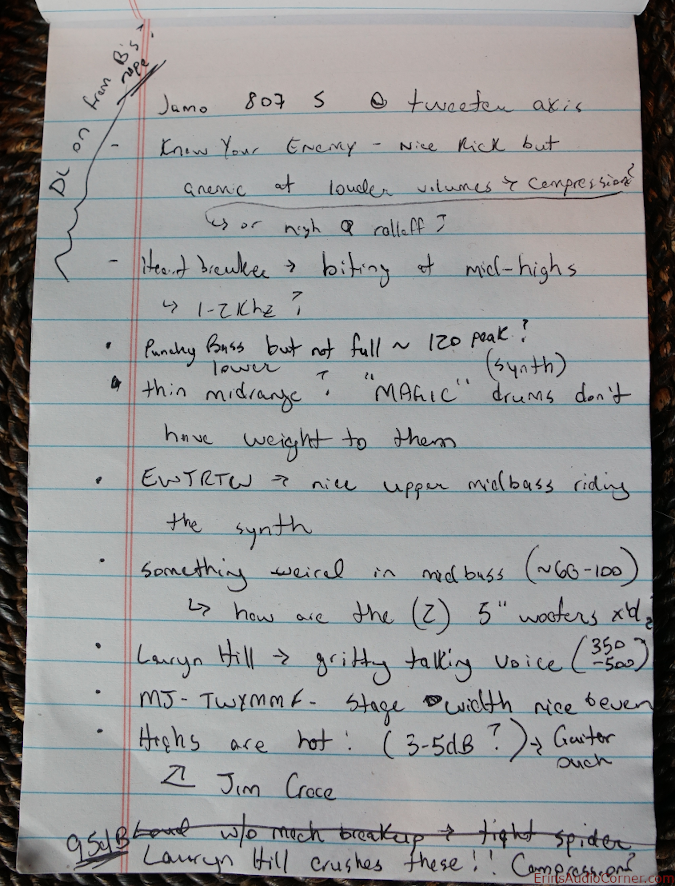 DL on from B's?
nope
Jamo 807 S @ tweeter axis
- Know Your Enemy - Nice Kick but
anemic at louder volumes → compression?
↳ or high Q rolloff?
- Heartbreaker → biting at mid-highs
↳ 1-2Khz?
• Punchy Bass but not full ~ 120 peak?
• thin lower midrange? "MAGIC" (synth) drums don't
have weight to them
• EWTRTW → nice upper midbass riding
the synth
• something weird in midbass (~60-100)
↳ how are the (2) 5" woofers x'd?
• Lauryn Hill → gritty talking voice (350-500)
• MJ - TWYMMF - Stage width nice & even
• Highs are hot! (3-5dB?) → Guitar
ouch
Jim Croce
95dB Loud w/o mech breakup → tight spider
Lauryn Hill crushes these!! Compression?
ErinsAudioCorner.com